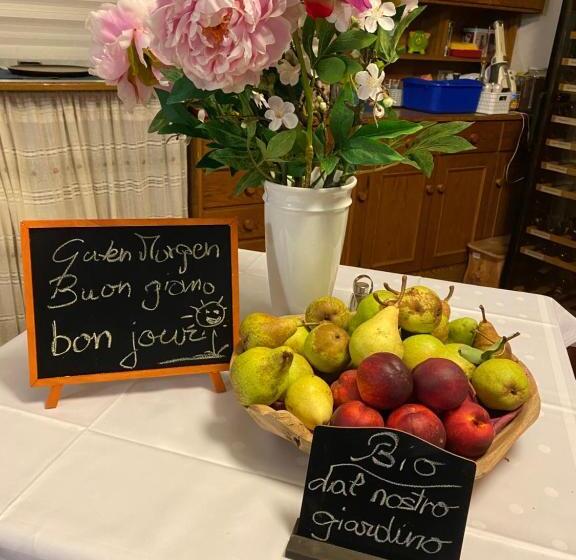 Guten Morgen
Buon giorno
bon jour
Bio
dal nostro
giardino